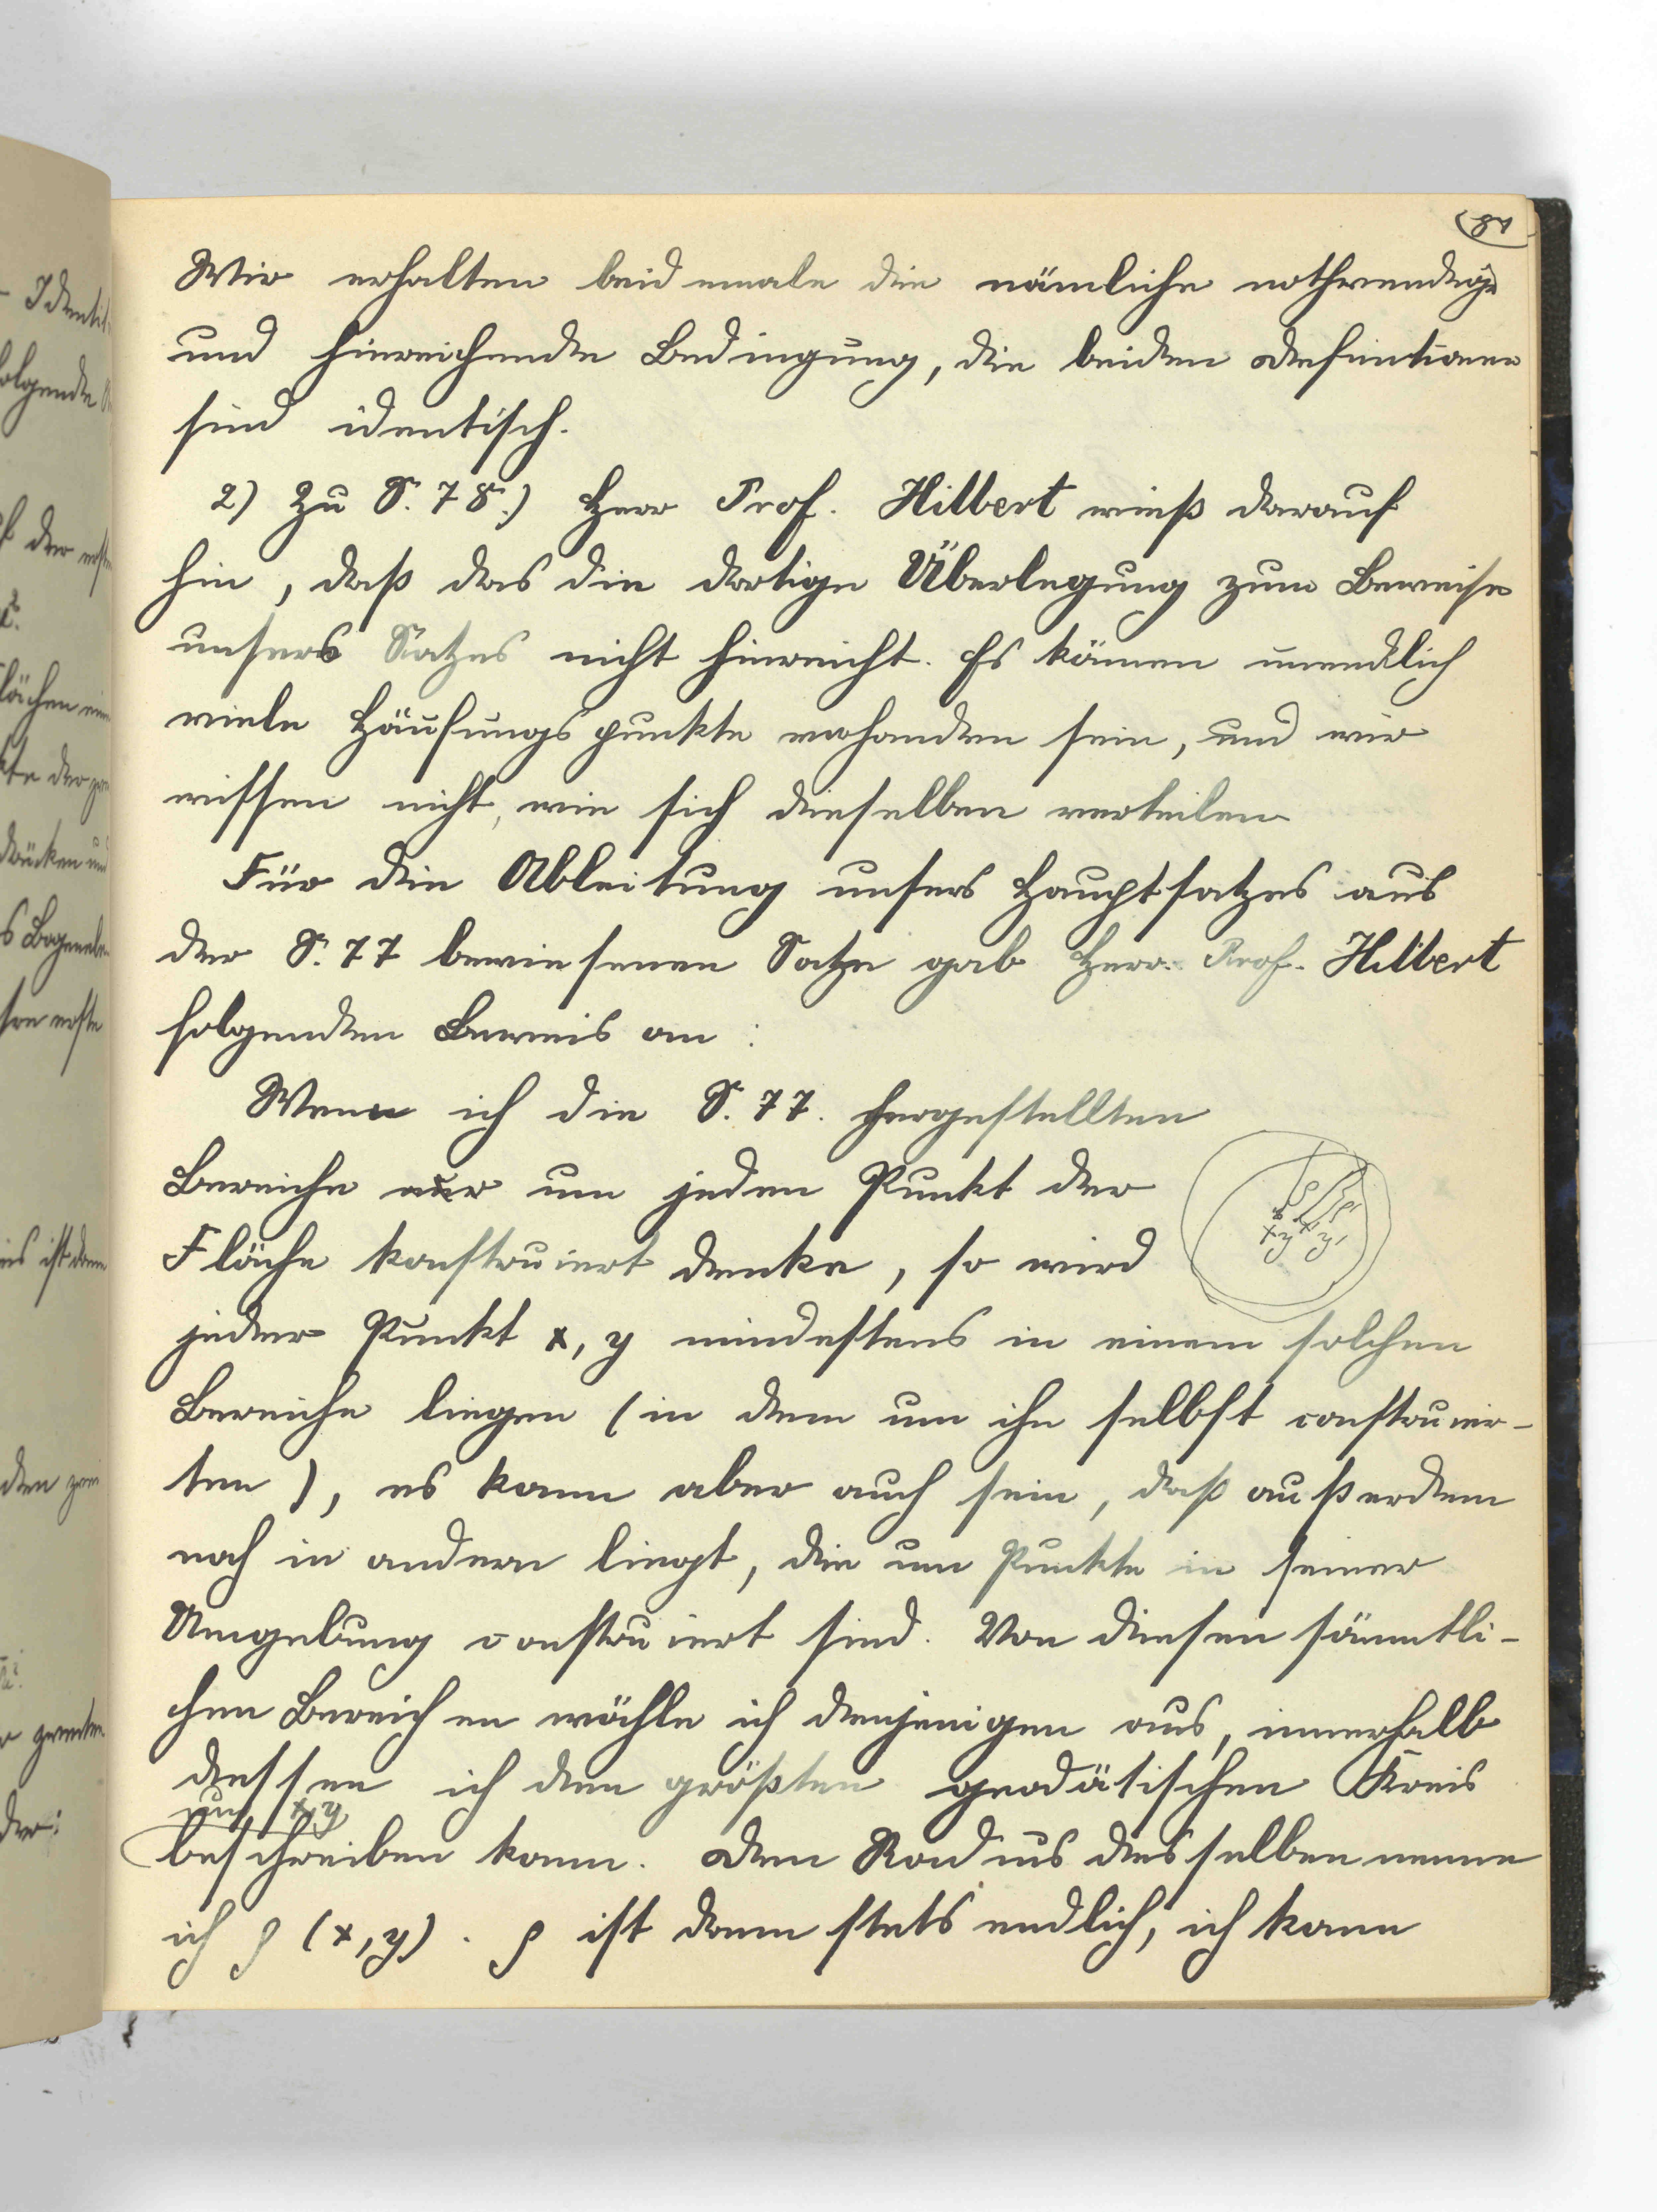 81
Wir erhalten beidemale die nämliche nothwendige
und hinreichende Bedingung, die beiden Definitionen
sind identisch.
2) Zu S. 78.) Herr Prof. Hilbert wieß darauf
hin, daß das die dortige Überlegung zum Beweise
unsers Satzes nicht hinreicht. Es können unendlich
viele Häufungspunkte vorhanden sein, und wir
wissen nicht, wie sich dieselben verteilen
Für die Ableitung unsers Hauptsatzes aus
der S. 77 bewiesenen Satze gab Herr Prof. Hilbert
folgenden Beweis an:
Wenn ich die S. 77. hergestellten
Bereiche um jeden Punkt der
Fläche konstruiert denke, so wird
jeder Punkt x, y mindestens in einem solchen
Bereiche liegen (in dem um ihn selbst construir-
ten), es kann aber auch sein, daß außerdem
noch in andern liegt, die um Punkte in seiner
Umgebung construiert sind. Von diesen sämmtli-
chen Bereichen wähle ich denjenigen aus, innerhalb
dessen ich den größten geodätischen Kreis
um x,y
beschreiben kann. Den Radius desselben nenne
ich ρ (x, y). ρ ist dann stets endlich, ich kann